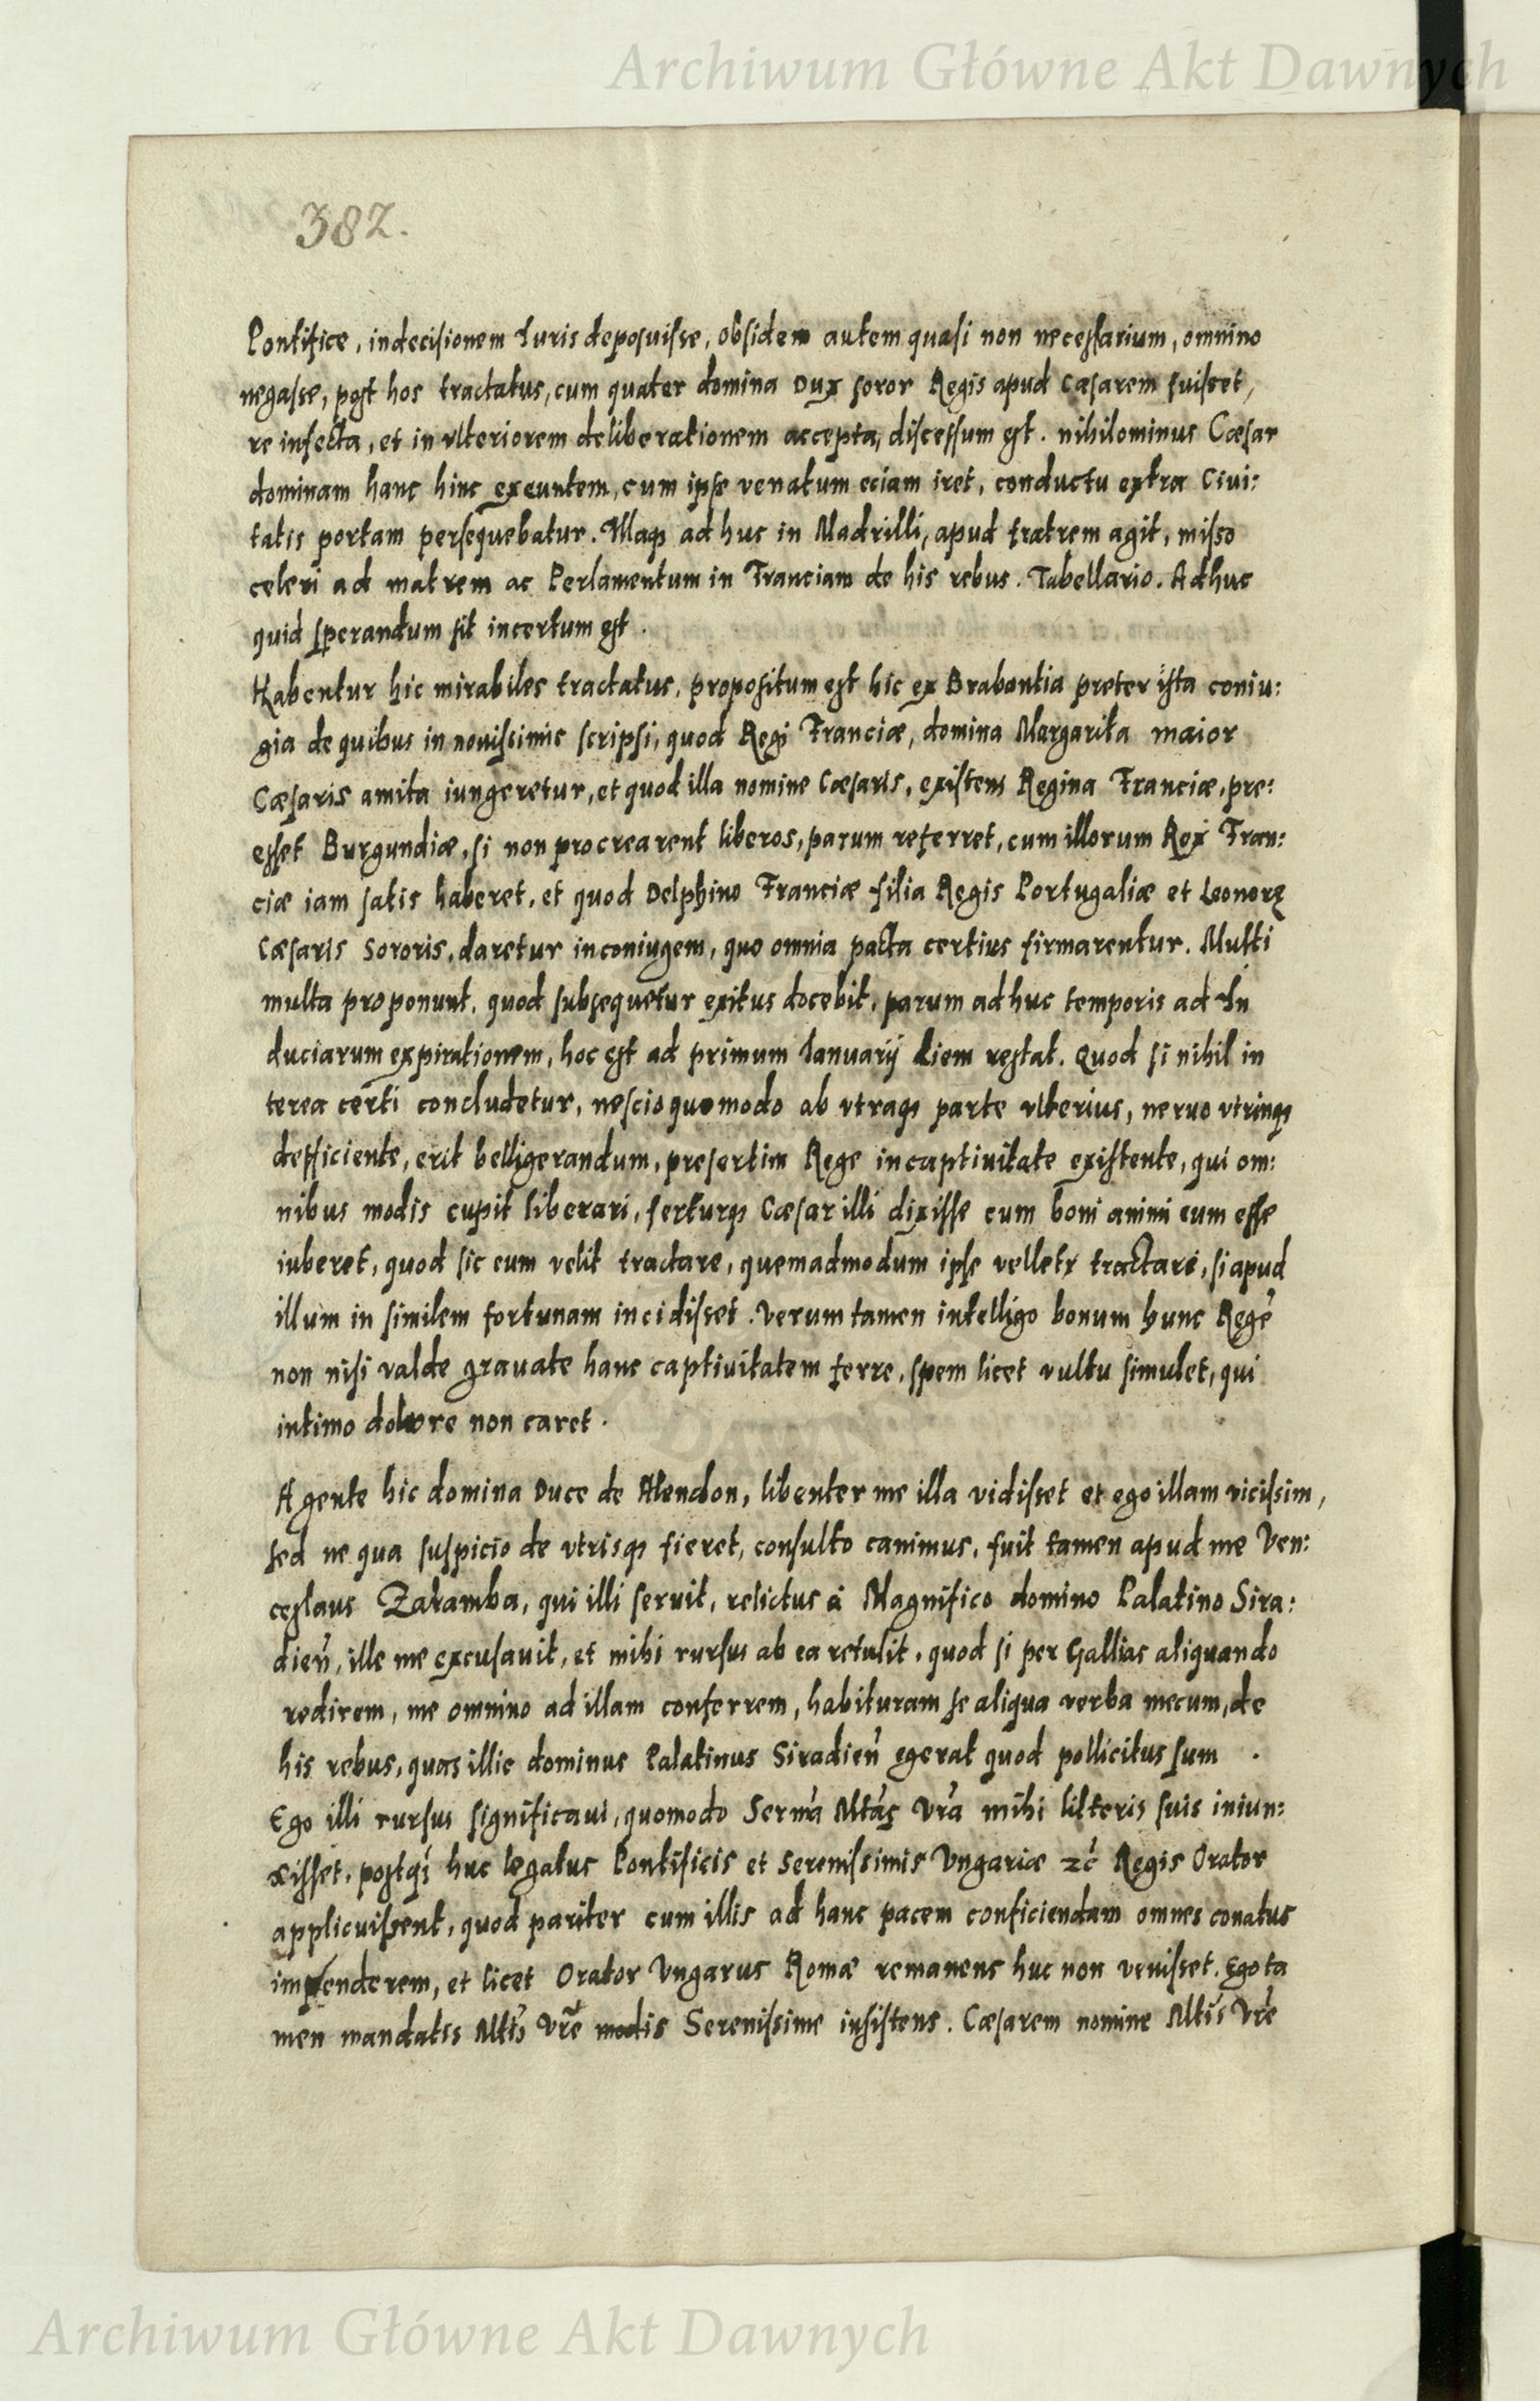 Archiwum Główne Akt Dawnych
382.
Pontifice, indecisionem Iuris deposuisse, obsidem autem quasi non necessarium, omnino
negasse, post hos tractatus, cum quater domina Dux soror Regis apud Cæsarem fuisset,
re infecta, et in vlteriorem deliberationem accepta, discessum est. nihilominus Cæsar
dominam hanc hinc exeuntem, cum ipse venatum eciam iret, conductu extra Ciui:
tatis portam persequebatur. Illaqȝ adhuc in Madrilli, apud fratrem agit, misso
celeri ad matrem ac Perlamentum in Franciam de his rebus. Tabellario. Adhuc
quid sperandum sit incertum est.
Habentur hic mirabiles tractatus, propositum est hic ex Brabantia preter ista coniu:
gia de quibus in nouissimis scripsi, quod Regi Franciæ, domina Margarita maior
Cæsaris amita iungeretur, et quod illa nomine Cæsaris, existens Regina Franciæ, pre:
esset Burgundiæ, si non procrearent liberos, parum referret, cum illorum Rex Fran:
ciæ iam satis haberet, et quod Delphino Franciæ filia Regis Portugaliæ et Leonorę
Cæsaris Sororis, daretur in coniugem, quo omnia pacta certius firmarentur. Multi
multa proponunt, quod subsequetur exitus docebit, parum adhuc temporis ad In
duciarum expirationem, hoc est ad primum Ianuarij diem restat. Quod si nihil in
terea certi concludetur, nescio quomodo ab vtraqȝ parte vlterius, neruo vtrinqȝ
defficiente, erit belligerandum, presertim Rege in captiuitate existente, qui om:
nibus modis cupit liberari, ferturqȝ Cæsar illi dixisse cum boni animi eum esse
iuberet, quod sic eum velit tractare, quemadmodum ipse vellet tractari, si apud
illum in similem fortunam incidisset. Verum tamen intelligo bonum hunc Regē
non nisi valde grauate hanc captiuitatem ferre, spem licet vultu simulet, qui
intimo dolore non caret.
Agente hic domina Duce de Alendon, libenter me illa vidisset et ego illam vicissim,
sed ne qua suspicio de vtrisqȝ fieret, consulto canimus, fuit tamen apud me Ven:
ceslaus Zaramba, qui illi seruit, relictus à Magnifico domino Palatino Sira:
dień, ille me excusauit, et mihi rursus ab ea retulit, quod si per Gallias aliquando
redirem, me omnino ad illam conferrem, habituram se aliqua verba mecum, de
his rebus, quas illic dominus Palatinus Siradień egerat quod pollicitus sum.
Ego illi rursus significaui, quomodo Serm̃a Mtãs Vrã mihi litteris suis iniun:
xisset, postqȝ huc legatus Pontificis et Serenissimis Vngariæ zc̃ Regis Orator
applicuissent, quod pariter cum illis ad hanc pacem conficiendam omnes conatus
impenderem, et licet Orator Vngarus Romæ remanens huc non venisset. Ego ta
men mandatis Mtis̃ Vrẽ modis Serenissime insistens. Cæsarem nomine Mtis̃ Vrẽ
Archiwum Główne Akt Dawnych